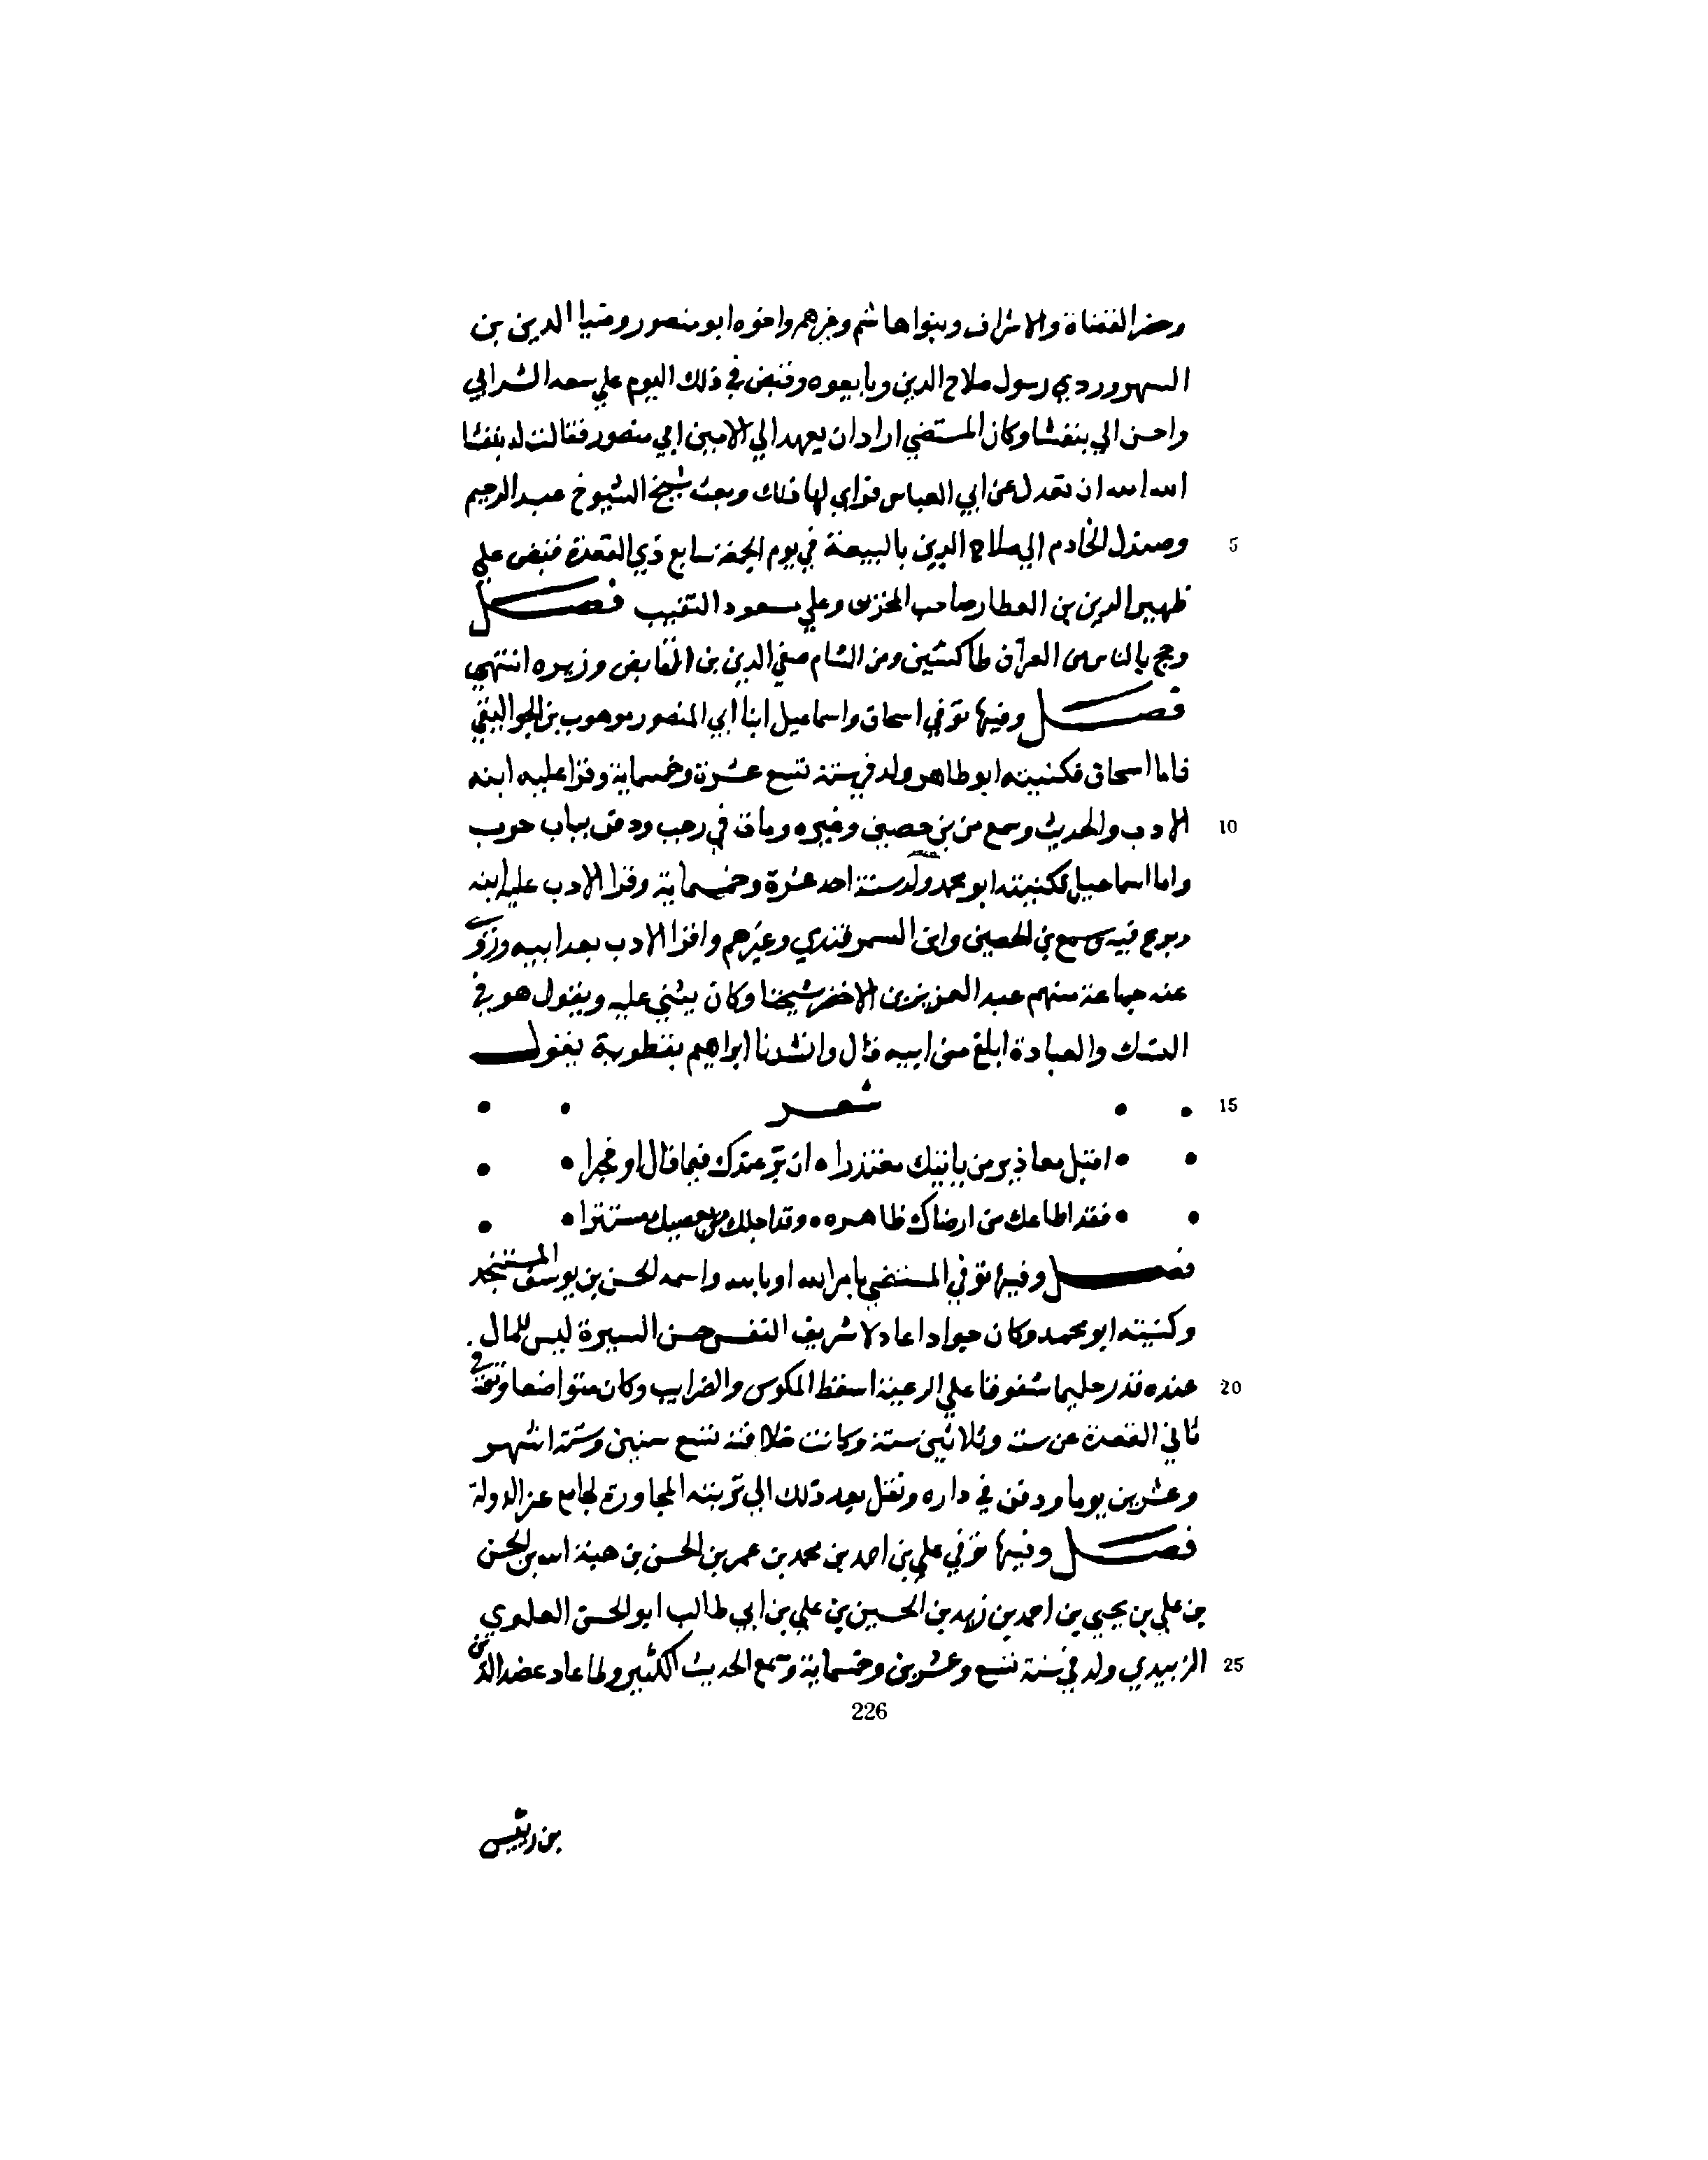 وحضر القضاة والاشراف وبنوا هاشم وغيرهم واخوه ابو منصور وضيا الدين بن
السهروردي رسول صلاح الدين وبايعوه وقبض في ذلك اليوم علي سعد الشرابي
واحسن الي بنفشا وكان المستضي اراد ان يعهد الي الامين ابي منصور فقالت له بنفشا
الله الله ان تعدل عن ابي العباس فراي لها ذلك وبعث شيخ الشيوخ عبد الرحيم
5 وصندل الخادم الي صلاح الدين بالبيعة في يوم الجمعة سابع ذي القعدة فقبض علي
ظهير الدين بن العطار صاحب المخزن وعلي مسعود النقيب فصل
وحج بالناس من العراق طاكشين ومن الشام صفي الدين بن القابض وزيره انتهي
فصل وفيها توفي اسحاق واسماعيل ابنا ابي المنصور موهوب بن الجواليقي
فاما اسحاق فكنيته ابو طاهر ولد في سنة تسع عشرة وخمسماية وقرا عليه ابنه
10 الادب والحديث وسمع من بن حصين وغيره ومات في رجب ودفن بباب حرب
واما اسماعيل فكنيته ابو محمد ولد سنة احد عشرة وخمسماية وقرا الادب علي ابنه
وسمع بن الحصين وابن السمرقندي وغيرهم واقرا الادب بعد ابيه وروي
عنه جماعة منهم عبد العزيز بن الاخضر شيخنا وكان يثني عليه ويقول هو في
النسك والعبادة ابلغ من ابيه قال وانشدنا ابراهيم بنفطوية يقول
15 شعر
اقبل معاذير من ياتيك معتذرا ان بر عندك فيما قال او فجرا
فقد اطاعك من ارضاك ظاهره وقد اجلك من يعصيك مستترا
فصل وفيها توفي المستضي بامر الله او بالله واسمه الحسن بن يوسف المستنجد
وكنيته ابو محمد وكان جوادا عادلا شريف النفس حسن السيرة ليس للمال
20 عنده قدر حليما شفوقا علي الرعية اسقط المكوس والضرايب وكان متواضعا وتوفي في
ثاني القعدة عن ست وثلاثين سنة وكانت خلافته تسع سنين وستة اشهر
وعشرين يوما ودفن في داره ونقل بعد ذلك الي تربته المجاورة لجامع عز الدولة
فصل وفيها توفي علي بن احمد بن محمد بن عمر بن الحسن بن هبة الله بن الحسن
بن علي بن يحيي بن احمد بن زيد بن الحسين بن علي بن ابي طالب ابو الحسن العلوي
25 الزبيدي ولد في سنة تسع وعشرين وخمسماية وسمع الحديث الكثير ولما عاد عضد الدين
226
بن رئيس